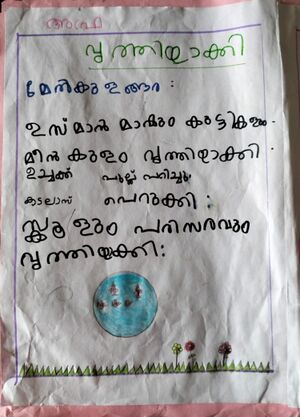 അഫ്ര
വൃത്തിയാക്കി
മേൽകുളങ്ങര :
ഉസ്മാൻ മാഷും കുട്ടികളും
മീൻ കുളം വൃത്തിയാക്കി .
ഉച്ചക്ക് പുല്ല് പറിച്ചു.
കടലാസ് പെറുക്കി :
സ്കൂളും പരിസരവും
വൃത്തിയക്കി: